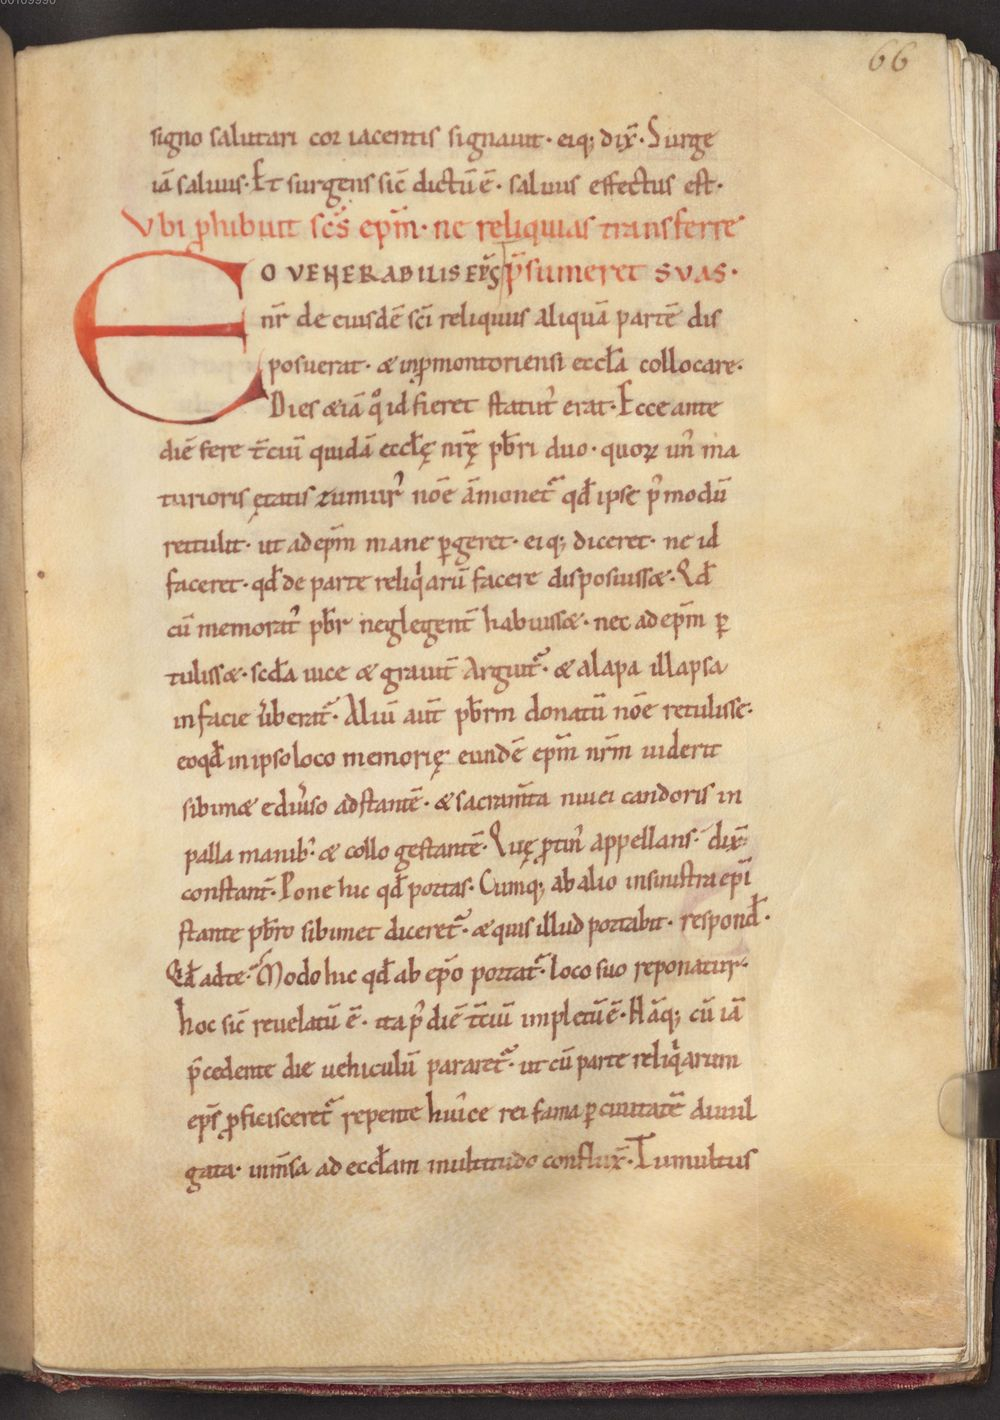 66
signo salutari cor iacentis signauit· eiq; dix̄· Surge
iā saluus· Et surgens sic̄ dictū ē· saluus effectus est·
Vbi ꝓhibuit sc̄s ep̄m· ne reliquias transferre
EO VENERABILIS EP̄S p̄sumeret SVAS·
nr̄ de eiusdē sc̄i reliquiis aliquā partē dis
posuerat· æ inꝓmontoriensi eccl̄a collocare·
Dies æiā qͦ id fieret statut᾽ erat· Ecce ante
diē fere t̄ciū quidā eccl̄ę nr̄ę pb̄ri duo· quoꝝ un᾽ ma
turioris ętatis zumur᾽ nōe āmonet᾽ qd̄ ipse p᾽modū
retulit· ut ad ep̄m mane ꝑgeret· eiq; diceret· ne id
faceret· qd̄ de parte reliqͥarū facere disposuissæ· Qd̄
cū memorat᾽ pb̄r neglegent̄ habuissæ· nec ad ep̄m ꝑ
tulissæ· sc̄da uice æ grauit̄ arguit᾽· æ alapa illapsa
in facie ūberat᾽· Aliū aut̄ pb̄rm donatū nōe retulisse·
eoqd̄ in ipso loco memorię eundē ep̄m nr̄m uiderit
sibimæ ediu᾽so adstantē· æ sacram̄ta niuei candoris in
palla manib᾽· æ collo gestantē· Quę ꝓtin᾽ appellans· dix̄·
constant̄· Pone hic qd̄ portas· Cumq; ab alio insinistra ep̄i
stante pb̄ro sibimet diceret᾽· æ quis illud portabit· respond̄·
Qd̄ adte· Modo hic qd̄ ab ep̄o portat᾽· loco suo reponatur·
hoc sic̄ reuelatū ē· ita p᾽ diē t̄ciū impletū ē· Nāq; cū iā
p̄cedente die uehiculū pararet᾽· ut cū parte reliqͥarum
ep̄s ꝓficisceret᾽ repente hui᾽ce rei fama ꝑ ciuitatē diuul
gata· inm̄sa ad eccl̄am multitudo conflux̄· Tumultus